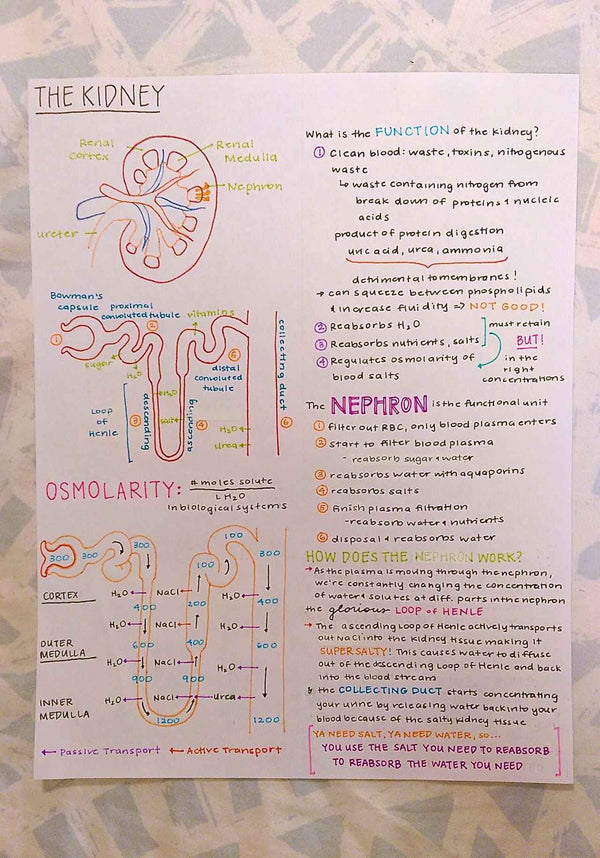 THE KIDNEY
Renal
Cortex
Renal
Medulla
Nephron
ureter
Bowman's
capsule
proximal
convoluted tubule
vitamins
①
②
sugar
H₂O
⑤
distal
convoluted
tubule
collecting duct
Loop
of
Henle
③
descending
H₂O
salt
ascending
④
H₂O
urea
⑥
OSMOLARITY: # moles solute
L H₂O
in biological systems
300
300
300
100
100
300
CORTEX
H₂O
NaCl
H₂O
400
200
400
H₂O
NaCl
H₂O
OUTER
MEDULLA
600
400
600
H₂O
NaCl
H₂O
900
900
INNER
MEDULLA
H₂O
NaCl
Urea
1200
1200
← Passive Transport ← Active Transport
What is the FUNCTION of the kidney?
① Clean blood: waste, toxins, nitrogenous
waste
↳ waste containing nitrogen from
break down of proteins & nucleic
acids
product of protein digestion
uric acid, urea, ammonia
detrimental to membranes!
→ can squeeze between phospholipids
& increase fluidity => NOT GOOD!
② Reabsorbs H₂O
③ Reabsorbs nutrients, salts
must retain
BUT!
④ Regulates osmolarity of
blood salts
in the
right
concentrations
The NEPHRON is the functional unit
① filter out RBC, only blood plasma enters
② start to filter blood plasma
- reabsorb sugar & water
③ reabsorbs water with aquaporins
④ reabsorbs salts
⑤ finish plasma filtration
- reabsorb water & nutrients
⑥ disposal & reabsorbs water
HOW DOES THE NEPHRON WORK?
→ As the plasma is moving through the nephron,
we're constantly changing the concentration
of water & solutes at diff. parts in the nephron
the glorious LOOP OF HENLE
→ The ascending Loop of Henle actively transports
out NaCl into the kidney tissue making it
SUPER SALTY! This causes water to diffuse
out of the descending Loop of Henle and back
into the blood stream
↳ the COLLECTING DUCT starts concentrating
your urine by releasing water back into your
blood because of the salty kidney tissue
YA NEED SALT, YA NEED WATER, SO...
YOU USE THE SALT YOU NEED TO REABSORB
TO REABSORB THE WATER YOU NEED